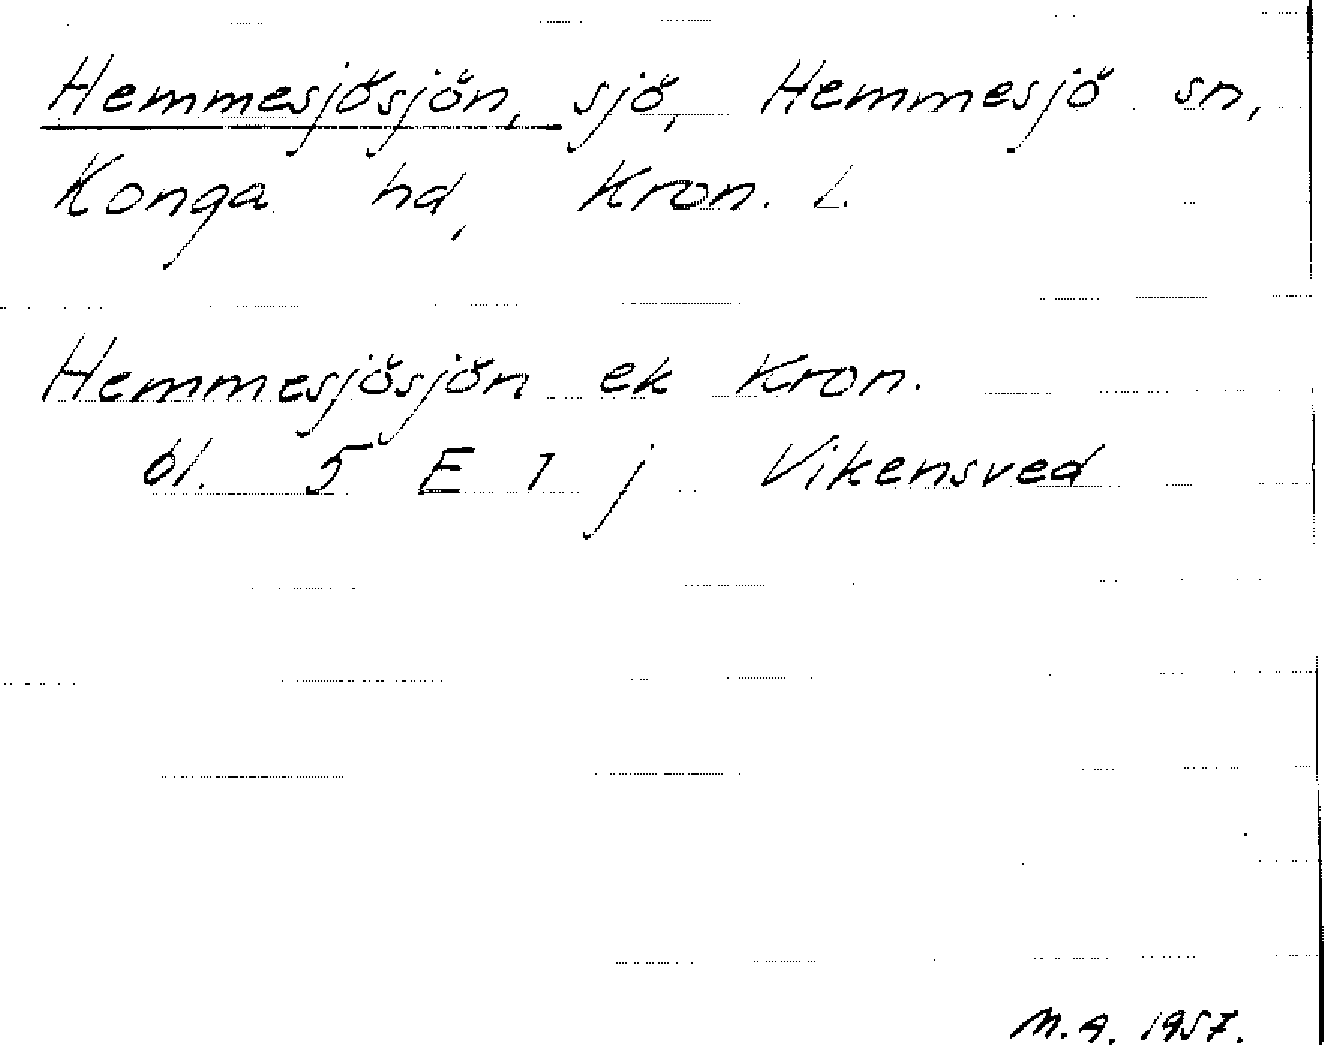 Hemmesjösjön, sjö, Hemmesjö sn,
Konga hd, Kron. L.
Hemmesjösjön ek Kron.
bl. 5 E 1 j Vikensved
M.A. 1957.